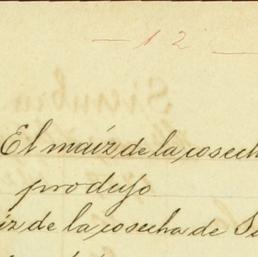 - 12 -
El maíz de la cosech
produjo
íz de la cosecha de